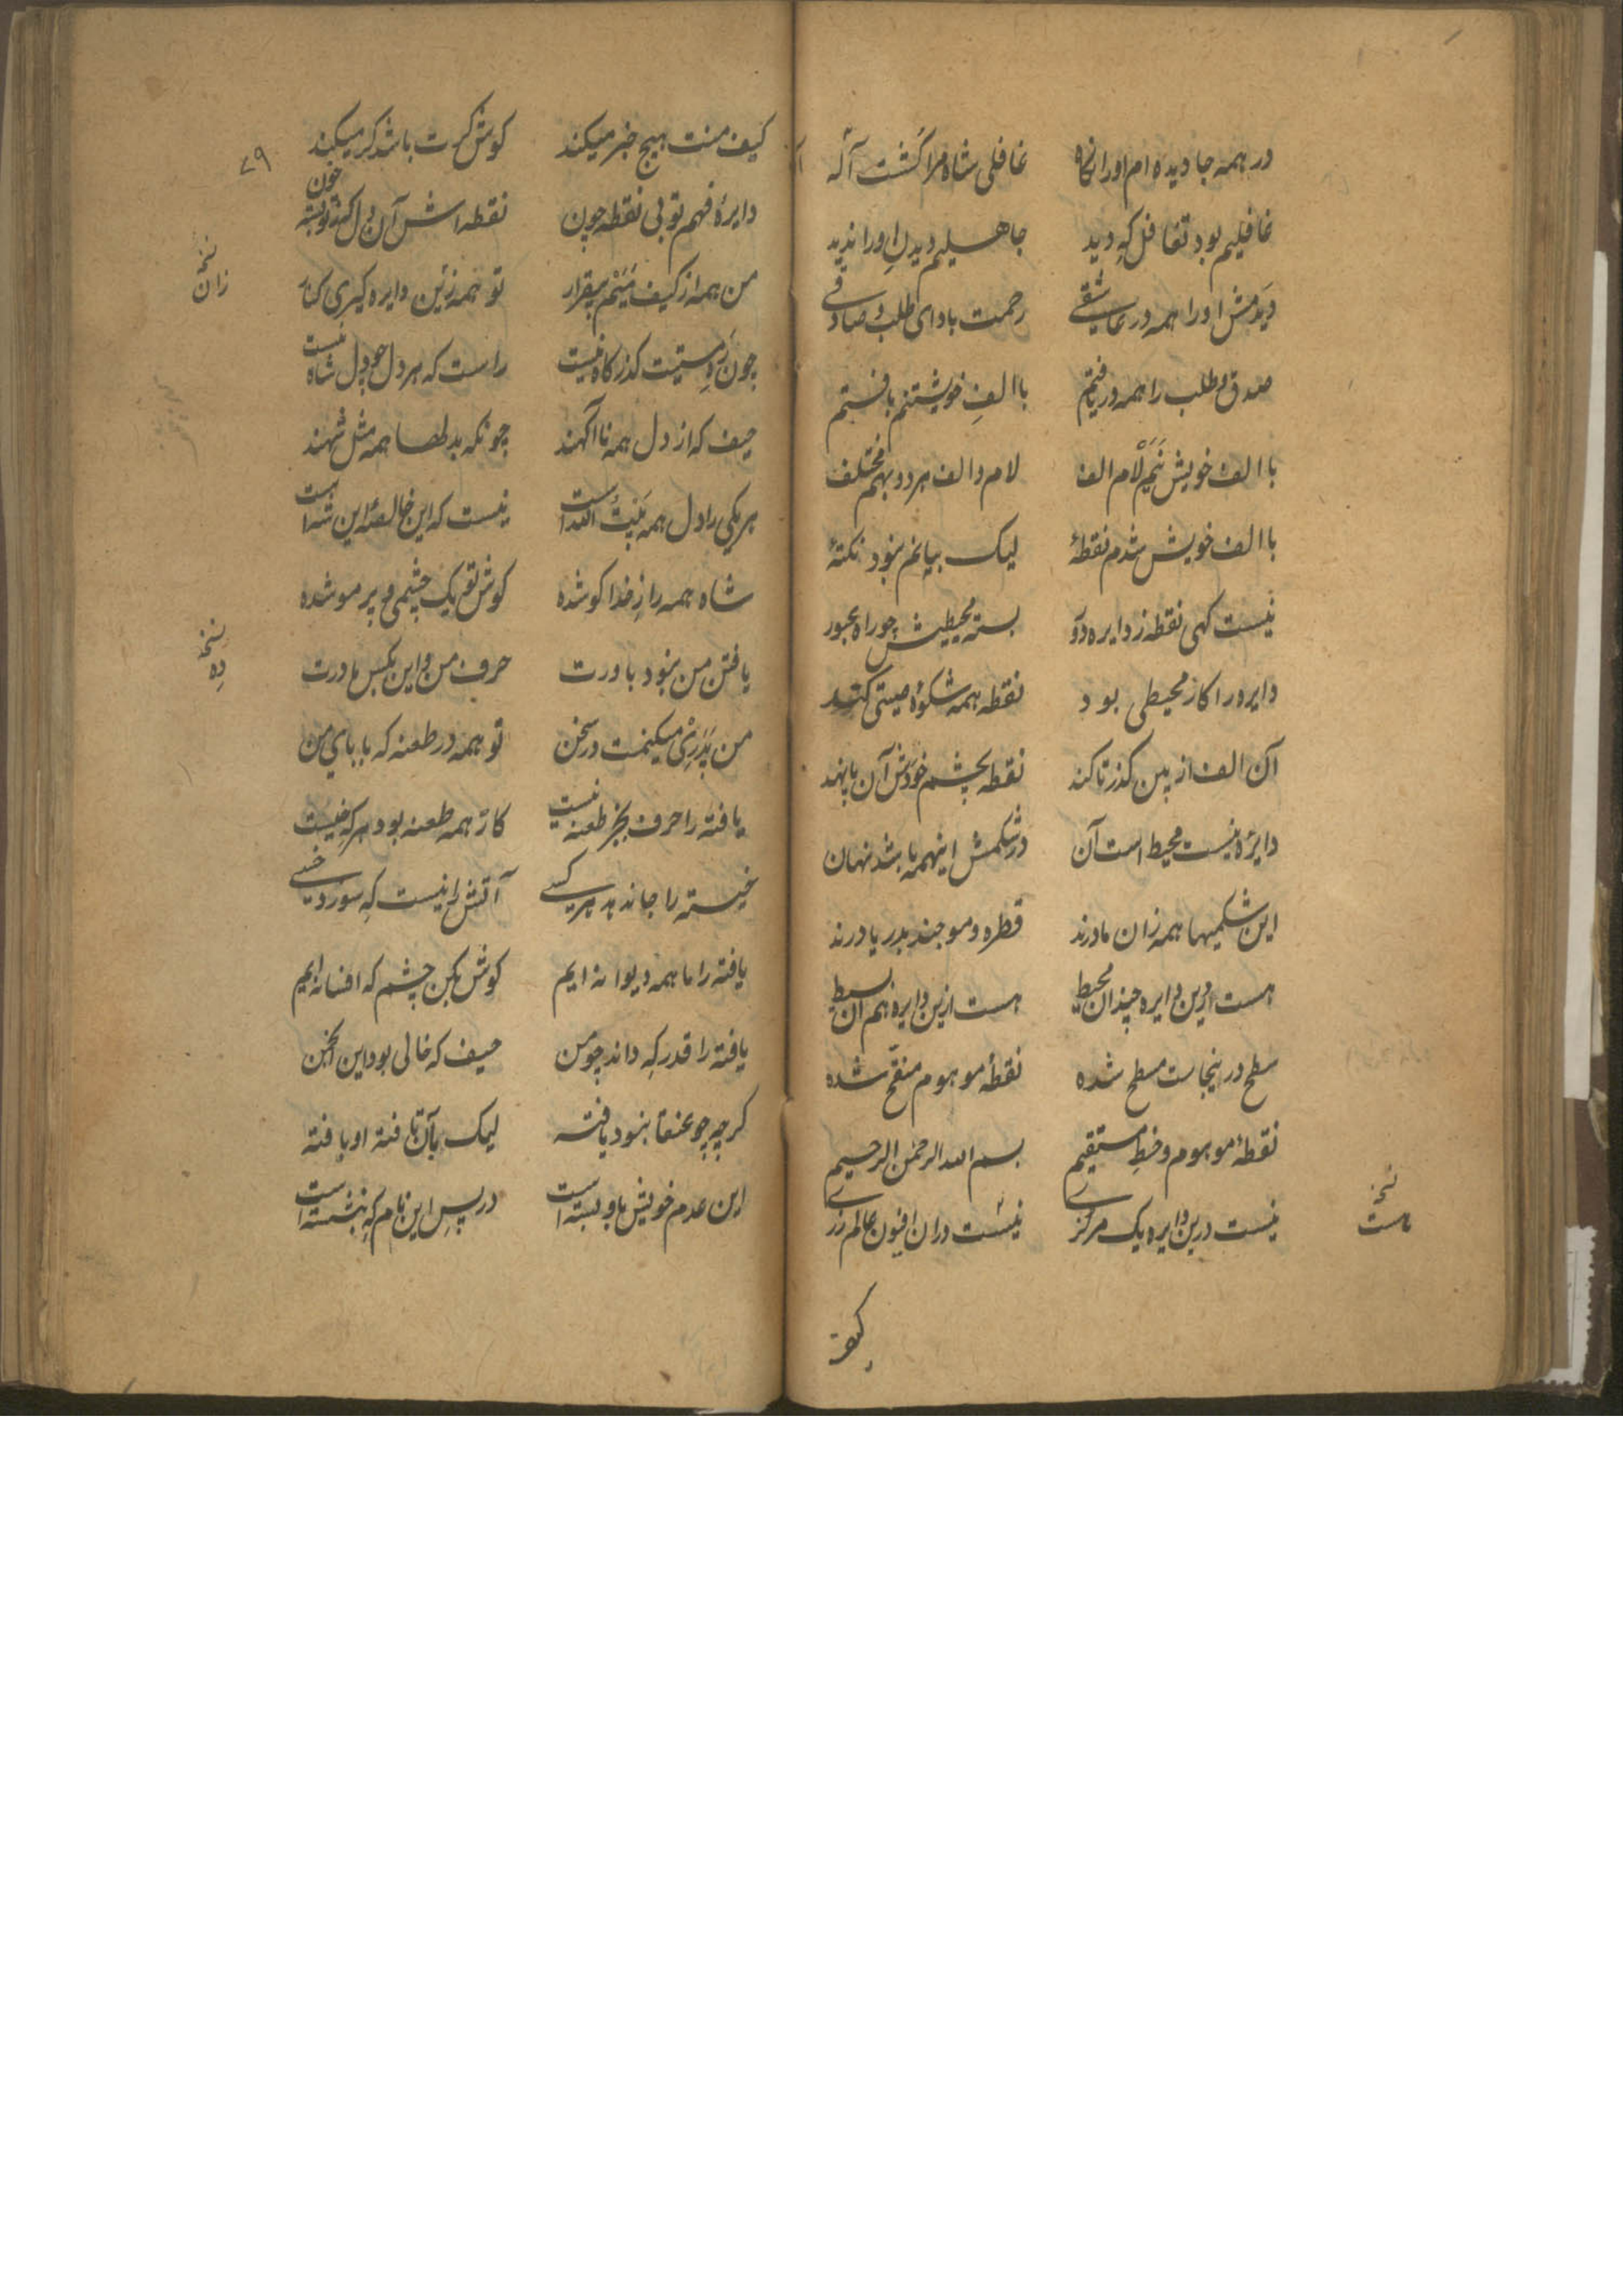 در همه جا دیده ام او را نگاه غافلی شاه مرا گشت آگه
غافلیم بود تغافل که دید جاهلیم دید دل او را ندید
دیدمش او را همه در عاشقی رحمت باد ای طلب و صادقی
صدق و طلب را همه دریافتم با الف خویشتنم بافتم
با الف خویش نیم لام الف لام و الف هر دو بهم مختلف
با الف خویش شدم نقطهٔ لیک بیانم نبود نکتهٔ
نیست کهی نقطه ز دایره دور بسته محیطیش چو راه عبور
دایره را کار محیطی بود نقطه همه شکوهٔ
آن الف از بین گذر تا کند نقطه بچشم خودش آن پا نهد
دایره نیست محیط است آن در شکمش اینهمه باشد نهان
این شکمیها همه زان مادرند قطره و موجند بدریا درند
هست ازین دایره چندان محیط هست ازین دایره هم آن بسیط
سطح درینجاست مسطح شده نقطهٔ موهوم منقح شده
نقطهٔ موهوم و خط مستقیم بسم الله الرحمن الرحیم
نیست درین دایره یک مرکزی نیست دران افیون عالم
نسخه
هست
کیف
۷۹
کیف منت هیچ خبر میکند کوش کرت باشد کر میکند
دایرهٔ فهم تو بی نقطه چون نقطه اش آن دل خون
من همه از کیف منیم بیقرار تو همه زین دایره کیری کنار
چون در مستیت گذرگاه نیست راست که هر دل چو دل شاه نیست
حیف که از دل همه ناآگهند چونکه همه مثل شهند
هر یکی را دل همه بیت الله است نیست که این خالصهٔ این شه است
شاه همه راز خدا کو شده کوش تو یک چشمی و پر مو شده
یافتن من نبود باورت حرف من و این مادرت
من پدری میکنمت در سخن تو همه در طعنه که بابای من
یافته را حرف بجز طعنه نیست کار همه طعنه بود هر که نیست
خسته را جا ندهد هر کسی آتش را نیست که سوزد خسی
یافته را ما همه دیوانه ایم کوش بکن چشم که افسانه ایم
یافته را قدر که داند چو من حیف که خالی بود این انجمن
کرچه چو عنقا نبود یافته لیک بآن تافته او یافته
این عدم خویش باو بسته است در پس این نام که بنشسته است
نسخه
زان
نسخه
ده